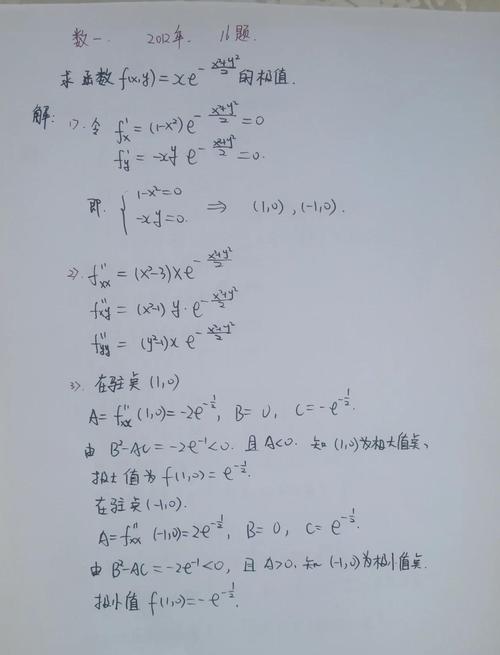 数一. 2012年. 16题.
求函数 f(x,y) = xe^{-\frac{x²+y²}{2}} 的极值.
解: 1). 令 f'_x = (1-x²)e^{-\frac{x²+y²}{2}} = 0
f'_y = -xy e^{-\frac{x²+y²}{2}} = 0.
即. { 1-x²=0 -xy=0. ⇒ (1,0), (-1,0).
2). f''_{xx} = (x²-3)xe^{-\frac{x²+y²}{2}}
f''_{xy} = (x²-1)y·e^{-\frac{x²+y²}{2}}
f''_{yy} = (y²-1)xe^{-\frac{x²+y²}{2}}
3). 在驻点(1,0)
A=f''_{xx}(1,0)=-2e^{-\frac{1}{2}}, B=0, C=-e^{-\frac{1}{2}}.
由 B²-AC=-2e^{-1}<0. 且A<0. 知(1,0)为极大值点、
极大值为f(1,0)=e^{-\frac{1}{2}}.
在驻点(-1,0).
A=f''_{xx}(-1,0)=2e^{-\frac{1}{2}}, B=0, C=e^{-\frac{1}{2}}.
由 B²-AC=-2e^{-1}<0, 且A>0. 知(-1,0)为极小值点.
极小值 f(1,0)=-e^{-\frac{1}{2}}.